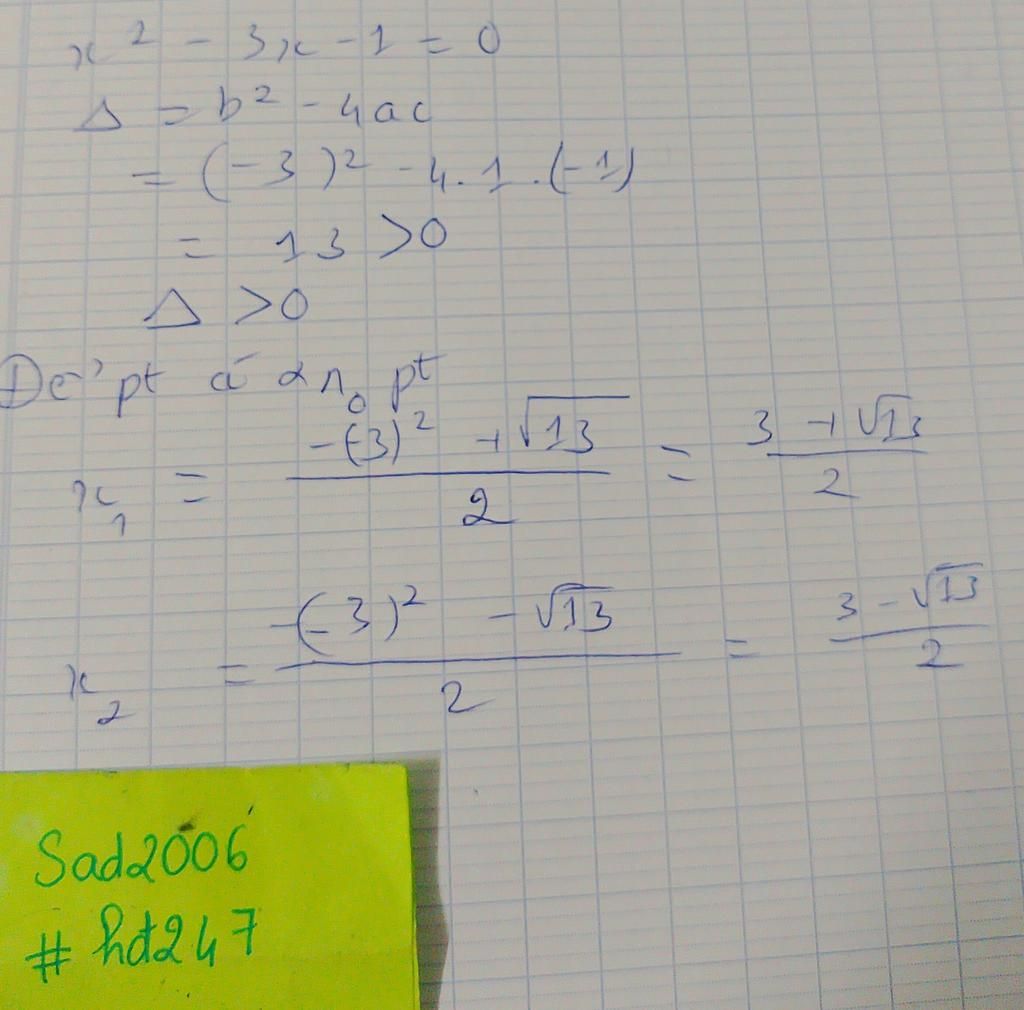 x² - 3x - 1 = 0
Δ = b² - 4ac
= (-3)² - 4.1.(-1)
= 13 >0
Δ >0
x₁ = (-(-3)² + √13)/2 = (3 + √13)/2
x₂ = (-(-3)² - √13)/2 = (3 - √13)/2
Sad2006
# hd247